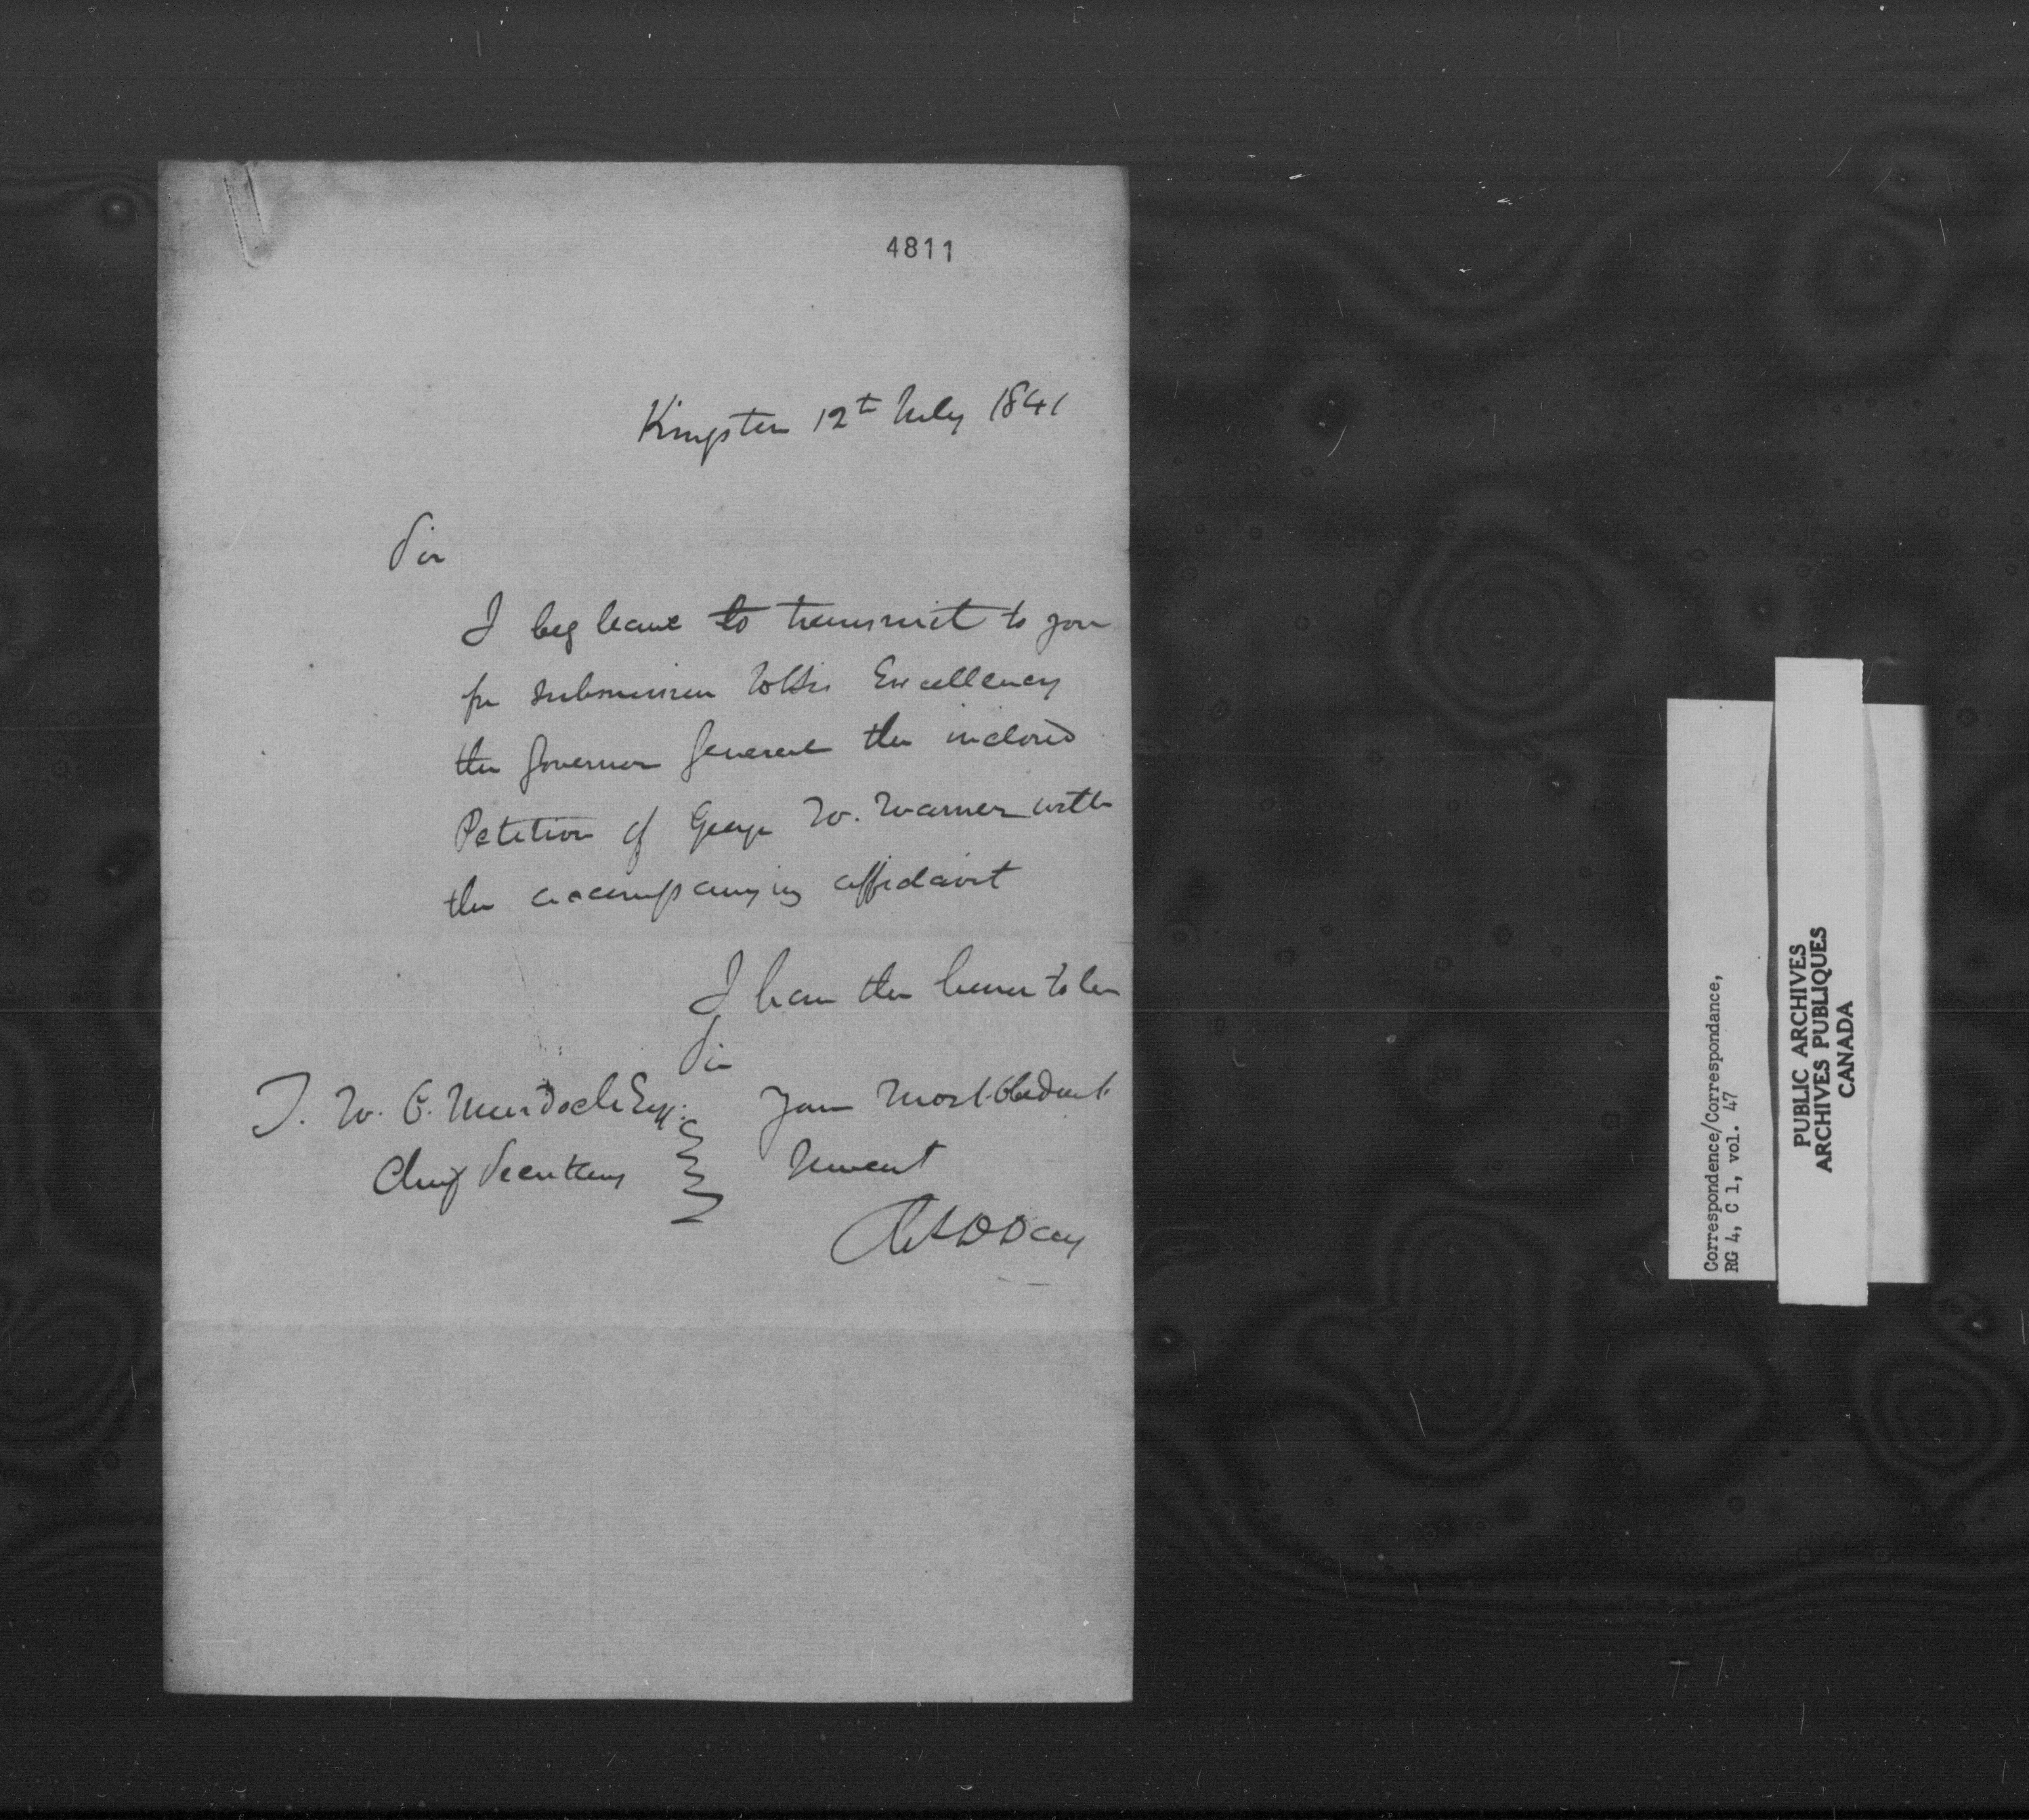 4811
Kingston 12th July 1841
Sir
I beg leave to transmit to you
for submission to His Excellency
the Governor General the inclosed
Petition of George W. Warner with
the accompanying affidavit
I have the honor to be
Sir
T. W. C. Murdoch Esq. Your most obedient
Chief Secretary Servant
C D Day
Correspondence/Correspondance,
RG 4, C 1, vol. 47
PUBLIC ARCHIVES
ARCHIVES PUBLIQUES
CANADA